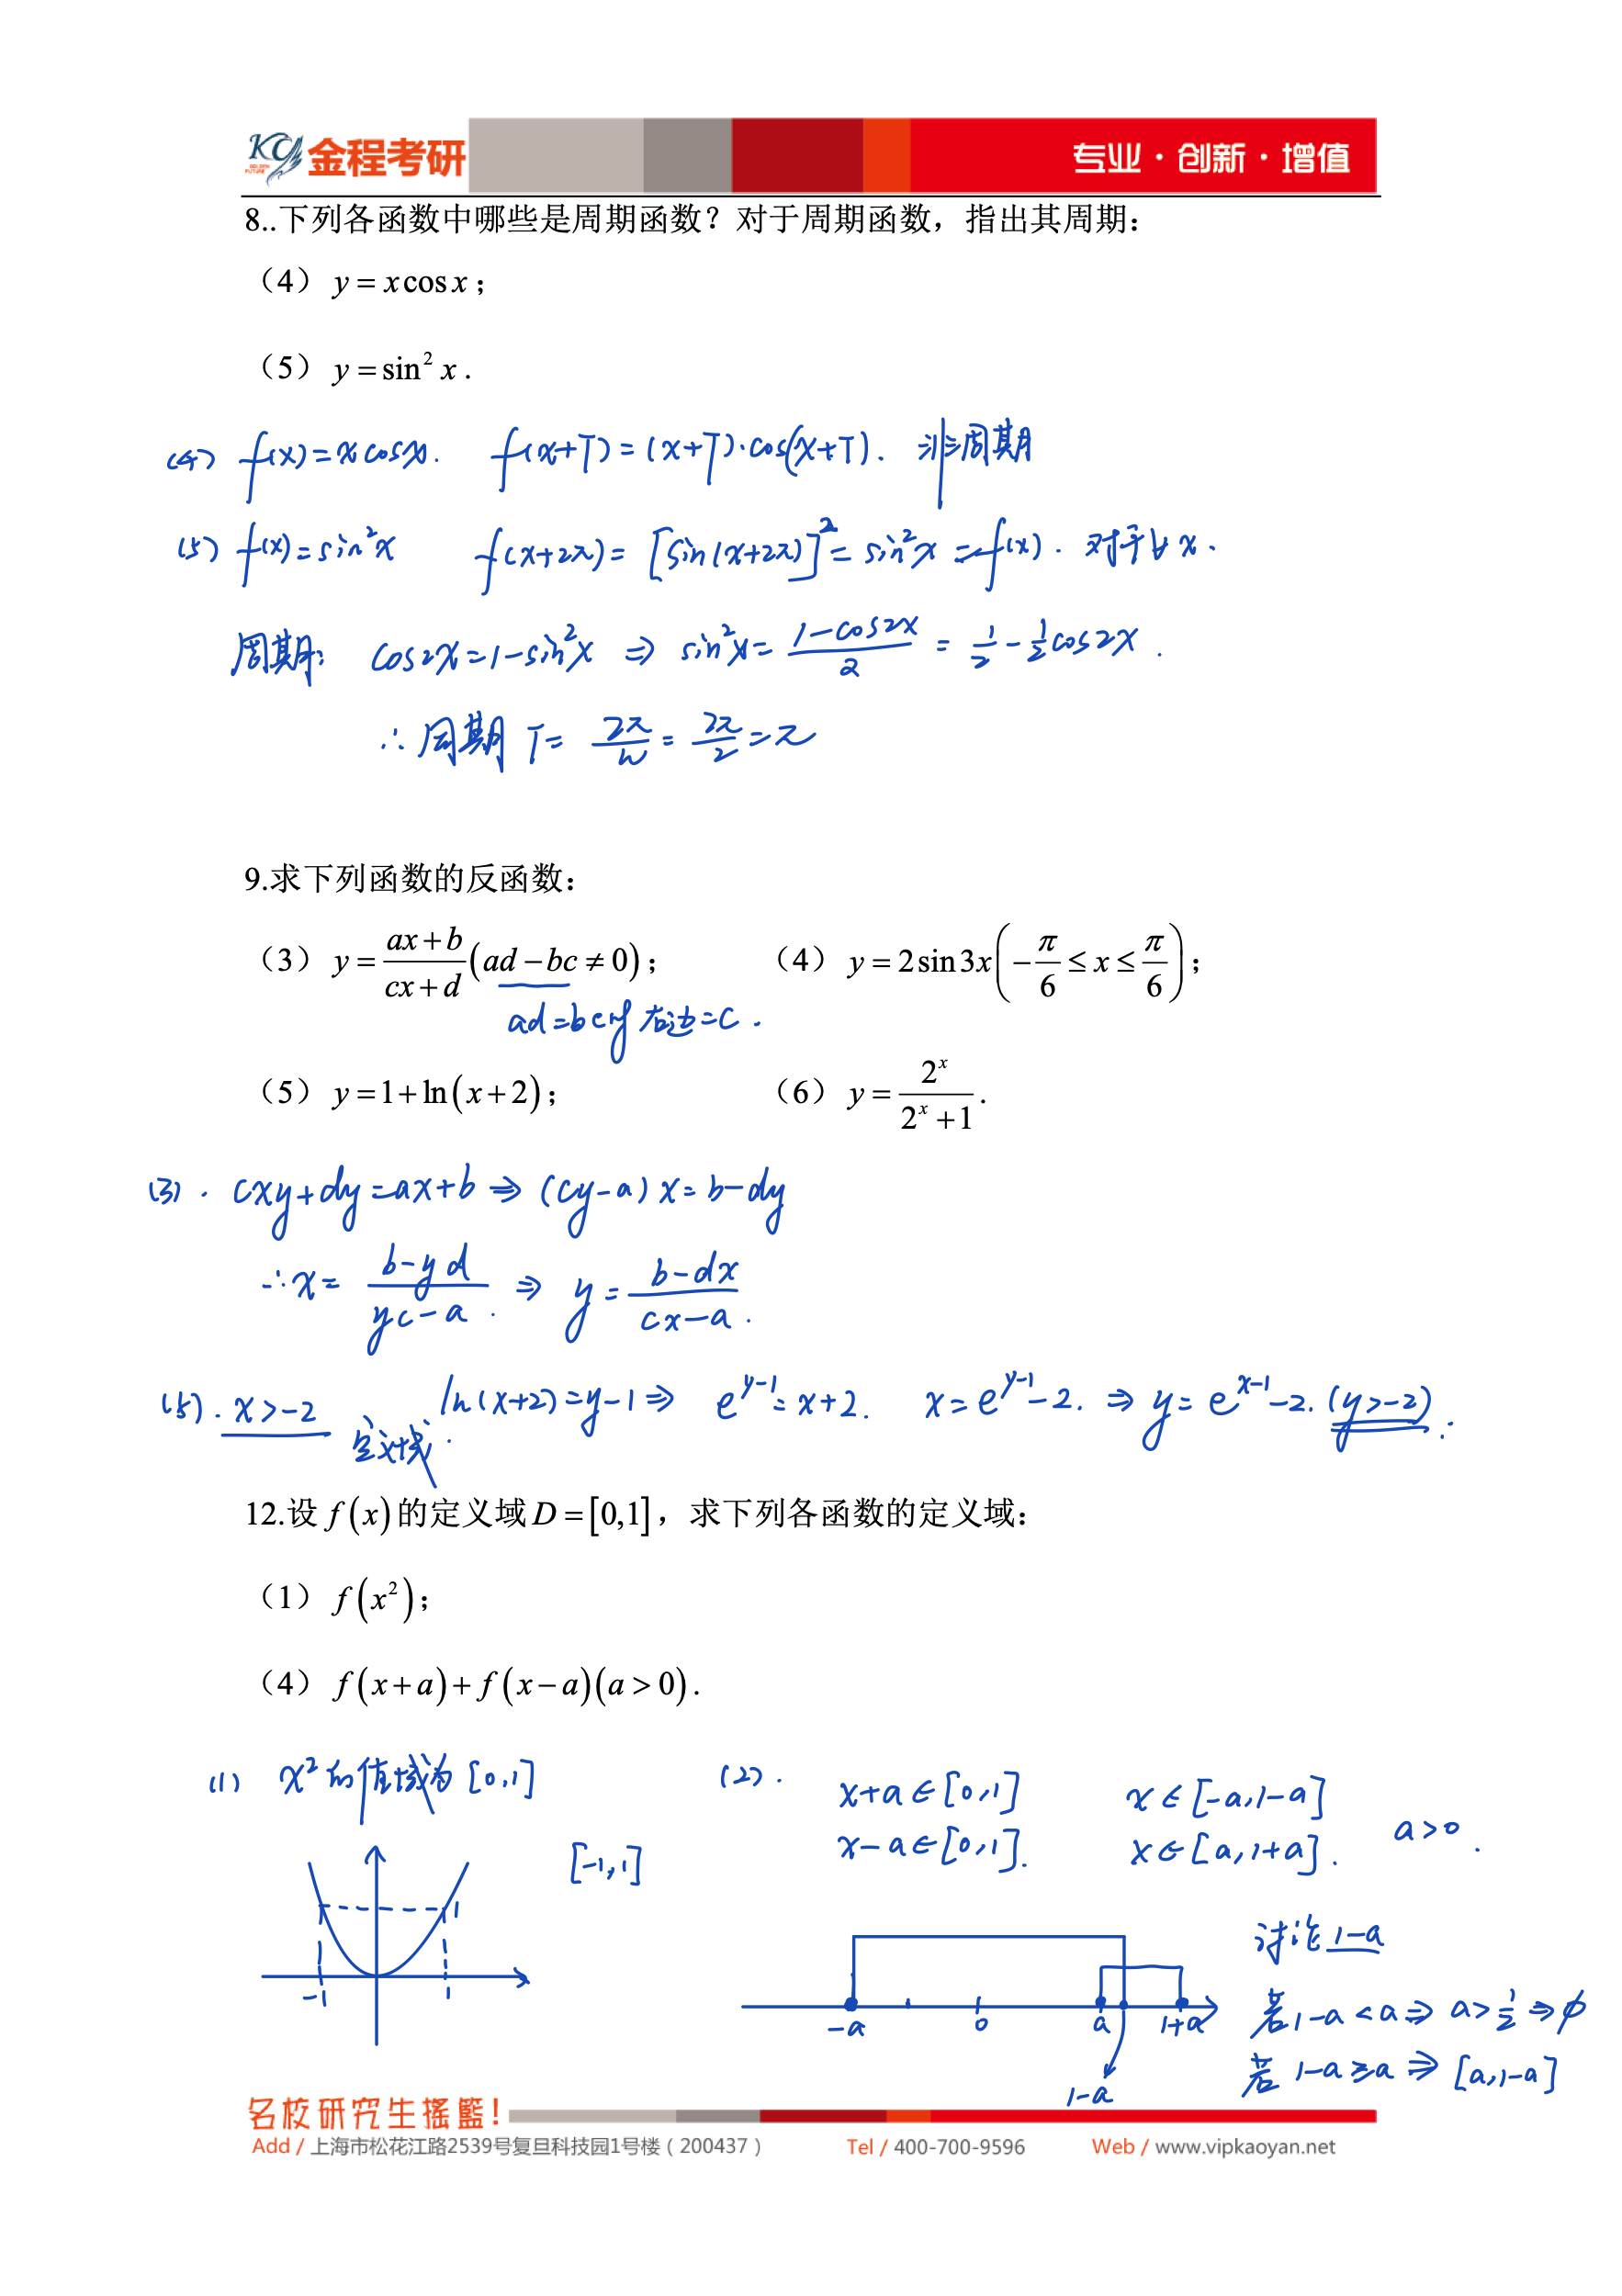 KCy 金程考研 专业·创新·增值
GOLDEN FUTURE
8..下列各函数中哪些是周期函数？对于周期函数，指出其周期：
（4） y = x cos x；
（5） y = sin² x .
(4) f(x)=x cosx. f(x+T)=(x+T)·cos(x+T). 非周期
(5) f(x)=sin²x f(x+2π)=[sin(x+2π)]²=sin²x=f(x). 对于∀x.
周期: cos2x=1-sin²x ⇒ sin²x=(1-cos2x)/2 = 1/2 - 1/2 cos2x.
∴周期 T= 2π/w = 2π/2 =π
9.求下列函数的反函数：
（3） y = (ax+b)/(cx+d) (ad − bc ≠ 0)； （4） y = 2sin3x(−π/6 ≤ x ≤ π/6)；
ad=bc时 右边=C.
（5） y = 1+ln(x+2)； （6） y = 2ˣ/(2ˣ+1).
(3). cxy+dy=ax+b ⇒ (cy-a)x=b-dy
∴x= (b-yd)/(yc-a). ⇒ y= (b-dx)/(cx-a).
(5). x>-2 定义域. ln(x+2)=y-1⇒ e^(y-1)=x+2. x=e^(y-1)-2. ⇒ y=e^(x-1)-2. (y>-2).
12.设 f(x)的定义域D=[0,1]，求下列各函数的定义域：
（1） f(x²)；
（4） f(x+a)+f(x−a)(a>0).
(1) x²的值域为[0,1] (2). x+a∈[0,1] x∈[-a,1-a]
x-a∈[0,1]. x∈[a,1+a]. a>0.
[-1,1]
1
-1 1
讨论1-a
-a 0 a 1+a
1-a
若1-a<a⇒ a>1/2 ⇒∅
若 1-a≥a ⇒ [a,1-a]
名校研究生摇篮!
Add / 上海市松花江路2539号复旦科技园1号楼（200437） Tel / 400-700-9596 Web / www.vipkaoyan.net